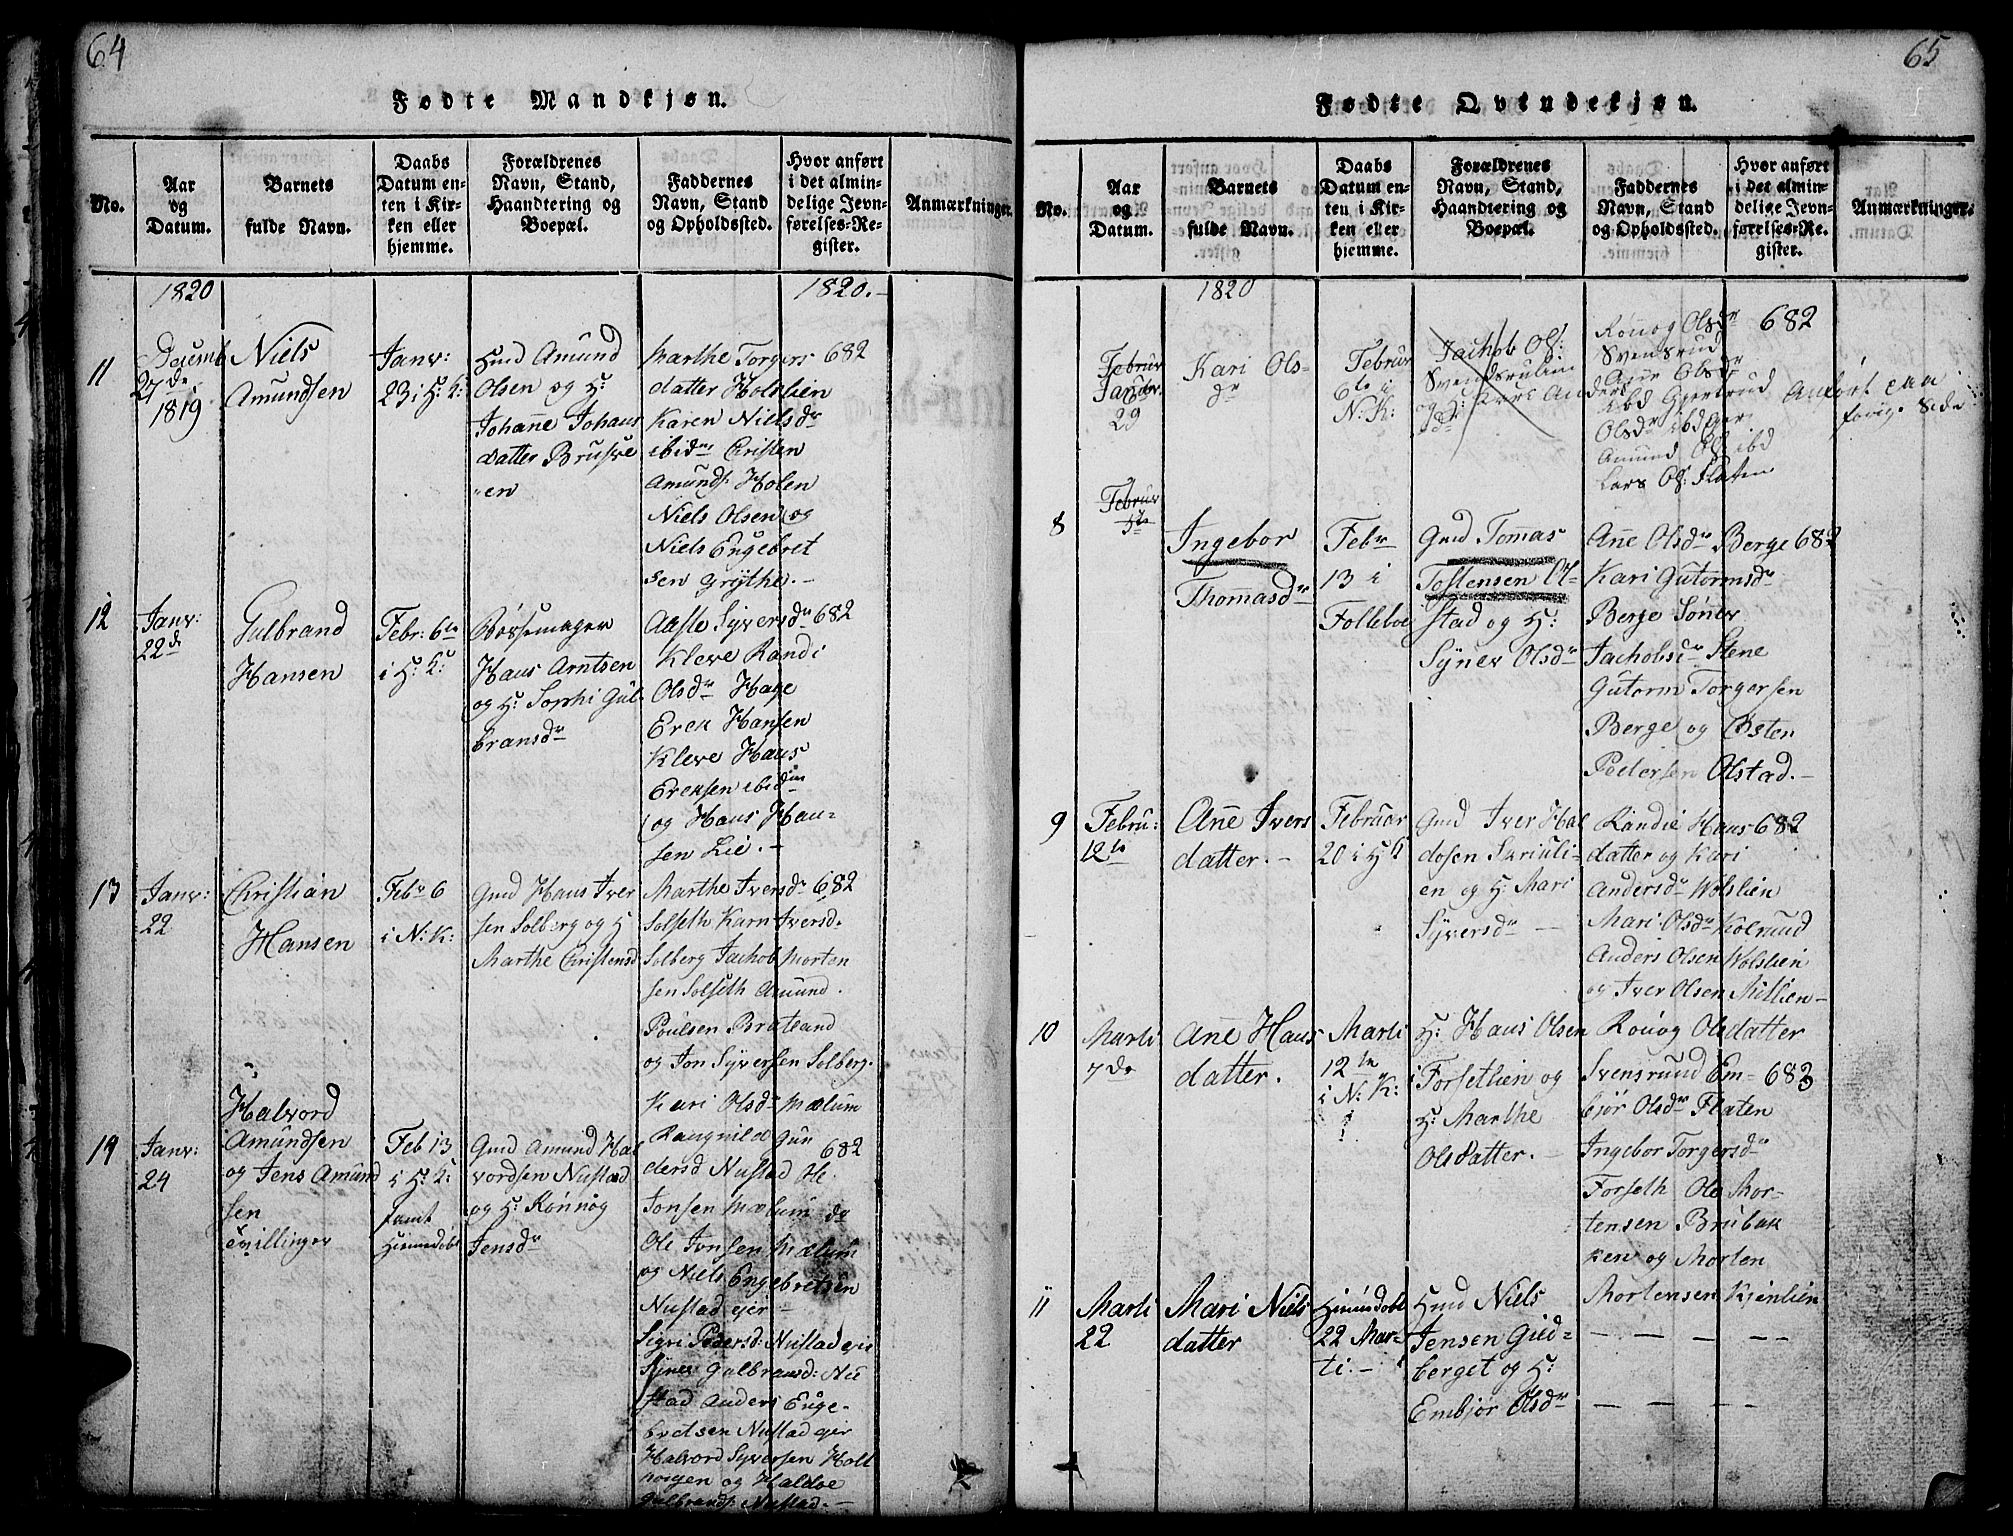 64
Fødte Mandkjøn.
No.
Aar
og
Datum.
Barnets
fulde Navn.
Daabs
Datum en-
ten i Kir-
ken eller
hjemme.
Forældrenes
Navn, Stand,
Haandtering og
Boepæl.
Faddernes
Navn, Stand
og Opholdssted.
Hvor anført
i det almin-
delige Jevn-
førelses-Re-
gister.
Anmærkninger.
1820
1820.-
11
Decemb
27de
1819
Niels
Amundsen
Janv:
23 i H: K:
Hmd Amund
Olsen og H:
Johane Johans
datter Brusve
"en
Marthe Torgers
datter Holslien
Karen Nielsdr
ibidm Christen
Amunds: Holen
Niels Olsen og
Niels Engebret
sen Grythe.-
682
12
Janv:
22de
Gulbrand
Hansen
Febr: 6te
i H: K:
Bøssemager
Hans Arntsen
og H: Sophi Gul
bransdr
Aaste Syversdr
Kleve Randi
Olsdr Hage
Erek Hansen
Kleve Hans
Ereksen ibidm
og Hans Han-
sen Lie.-
682
13
Janv:
22
Christian
Hansen
Febr 6
i N: K:
Gmd Hans Iver
sen Solberg og H
Marthe Christensd
Marthe Iversdr
Solseth Karn Iversd.
Solberg Jachob Morten
sen Solseth Amund.
Poulsen Brateand
og Jon Syversen Solberg.
682
14
Janv:
24
Halvord
Amundsen
og Jens Amund
sen
tvillinger
Feb 13
i H: K:
samt
Hiemedøbt
Gmd Amund Hal
vordsen Nustad
og H: Rønnog
Jensdr
Kari Olsdr Mælum
Rangnild Gun
dersd Nustad Ole
Jonsen Mælum do
Ole Jonsen Mælum
og Niels Engebretsen
Nustad ejer
Sigri Pedersd: Nustad eje
Synev Gulbransd: Nu
stad Anders Enge-
bretsen Nustad ejer
Halvord Syversen Holt
hogen og Haldoe
Gulbrands: Nustad.-
682
65
Fødte Qvindekjøn.
No.
Aar
og
Datum.
Barnets
fulde Navn.
Daabs
Datum en-
ten i Kir-
ken eller
hjemme.
Forældrenes
Navn, Stand,
Haandtering og
Boepæl.
Faddernes
Navn, Stand
og Opholdssted.
Hvor anført
i det almin-
delige Jevn-
førelses-Re-
gister.
Anmærkninger.
1820
Februr
Januar
29
Kari Ols-
dr
Februr
6te i
N: K:
Jachob Ols:
Svendsrulien
og H: Kari Anders
dr
Rønog Olsdr
Svensrud
Ane Olsdr
ibd Gjertrud
Olsdr ibd
Amund Ols: ibd
Lars Ols: Flaten
682
Anført paa
forige Side
8
Februr
5te
Ingebor
Thomasdr
Febr
13 i
Folleboe
Gmd Tomas
Tostensen Ol-
stad og H:
Synev Olsdr
Ane Olsdr Berge
Kari Gutormsdr
Berge Sønev
Jachobsdr Stene
Gutorm Torgersen
Berge og Østen
Pedersen Olstad.-
682
9
Febru:
12te
Ane Ivers
datter.-
Februar
20 i H K
Gmd Iver Hal
dosen
en og H: Mari
Syversdr
Randie Hans
datter og Kari
Andersdr Wolslien
Mari Olsdr Kolrund
Anders Olsen Wolslien
og Iver Olsen
682
10
Marti
7de
Ane Hans
datter.
Marti
12te
i N: K:
H: Hans Olsen
Forsetlien og
H: Marthe
Olsdatter.-
Ronog Olsdatter
Svensrund Em-
bjør Olsdr Flaten
Ingebor Torgersdr
Forseth Ole Mor-
tensen Brubak
ken og Morten
Mortensen Kjenlien
683
11
Marti
22
Mari Niels
datter
Hiemdøbt
22 Mar-
ti.-
Hmd Niels
Jensen Gied-
berget og H:
Embjør Olsdr